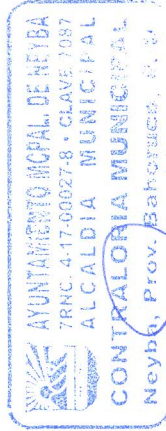 AYUNTAMIENTO MCPAL. DE NEYBA
RNC. 4-17-00027-8 • CLAVE 1087
ALCALDIA MUNICIPAL
CONTRALORIA MUNICIPAL
Neyba, Prov. Bahoruco, R.D.